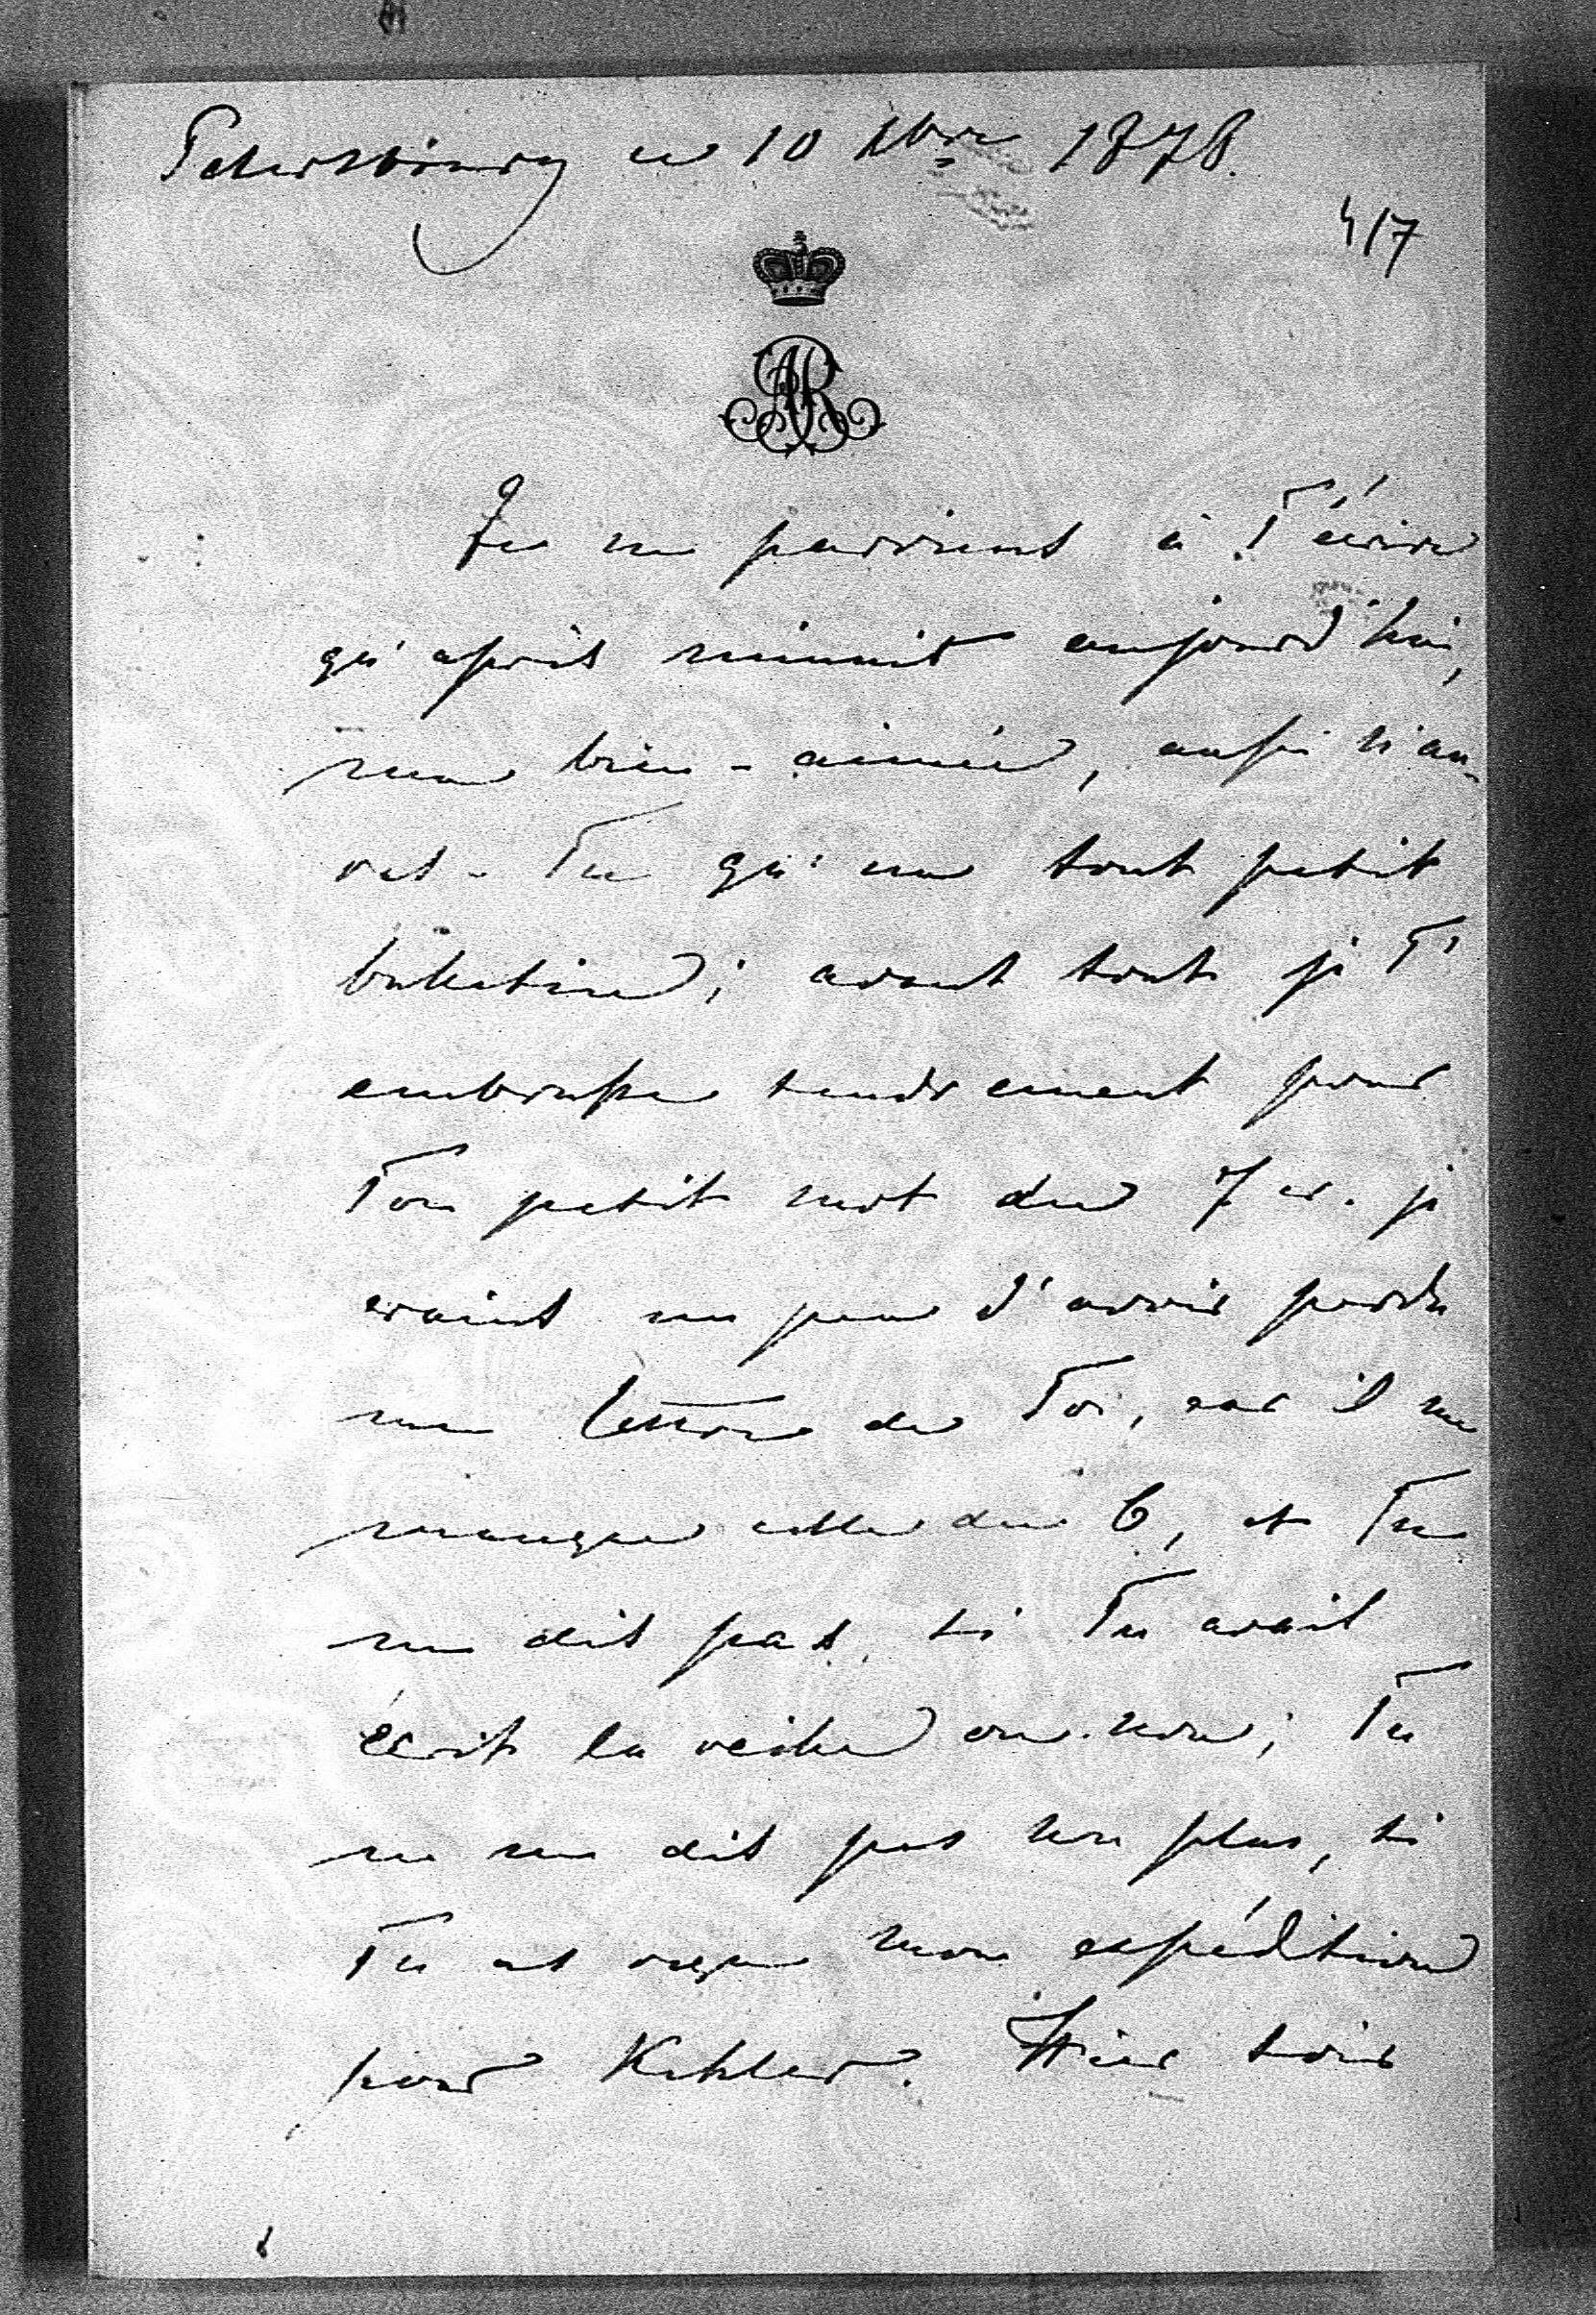 Petersbourg ce 10 Xbre 1878.
417
Je ne parviens à T'écrire
qu'après minuit aujourd'hui,
ma bien-aimée, aussi n'au-
ras-Tu qu'un tout petit
bulletin; avant tout je T'
embrasse tendrement pour
Ton petit mot du 7 cr. je
crains un peu d'avoir perdu
une lettre de Toi, car il me
manque celle du 6, et Tu
ne dis pas, si Tu avais
écrit la veille ou non; Tu
ne me dis pas non plus, si
Tu as reçu mon expédition
pour Kehler. Hier soir